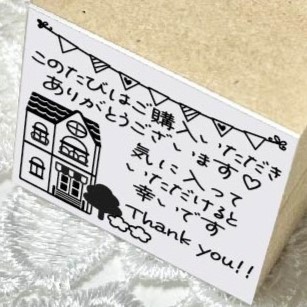 このたびはご購入いただき
ありがとうございます♡
気に入って
いただけると
幸いです
Thank you!!